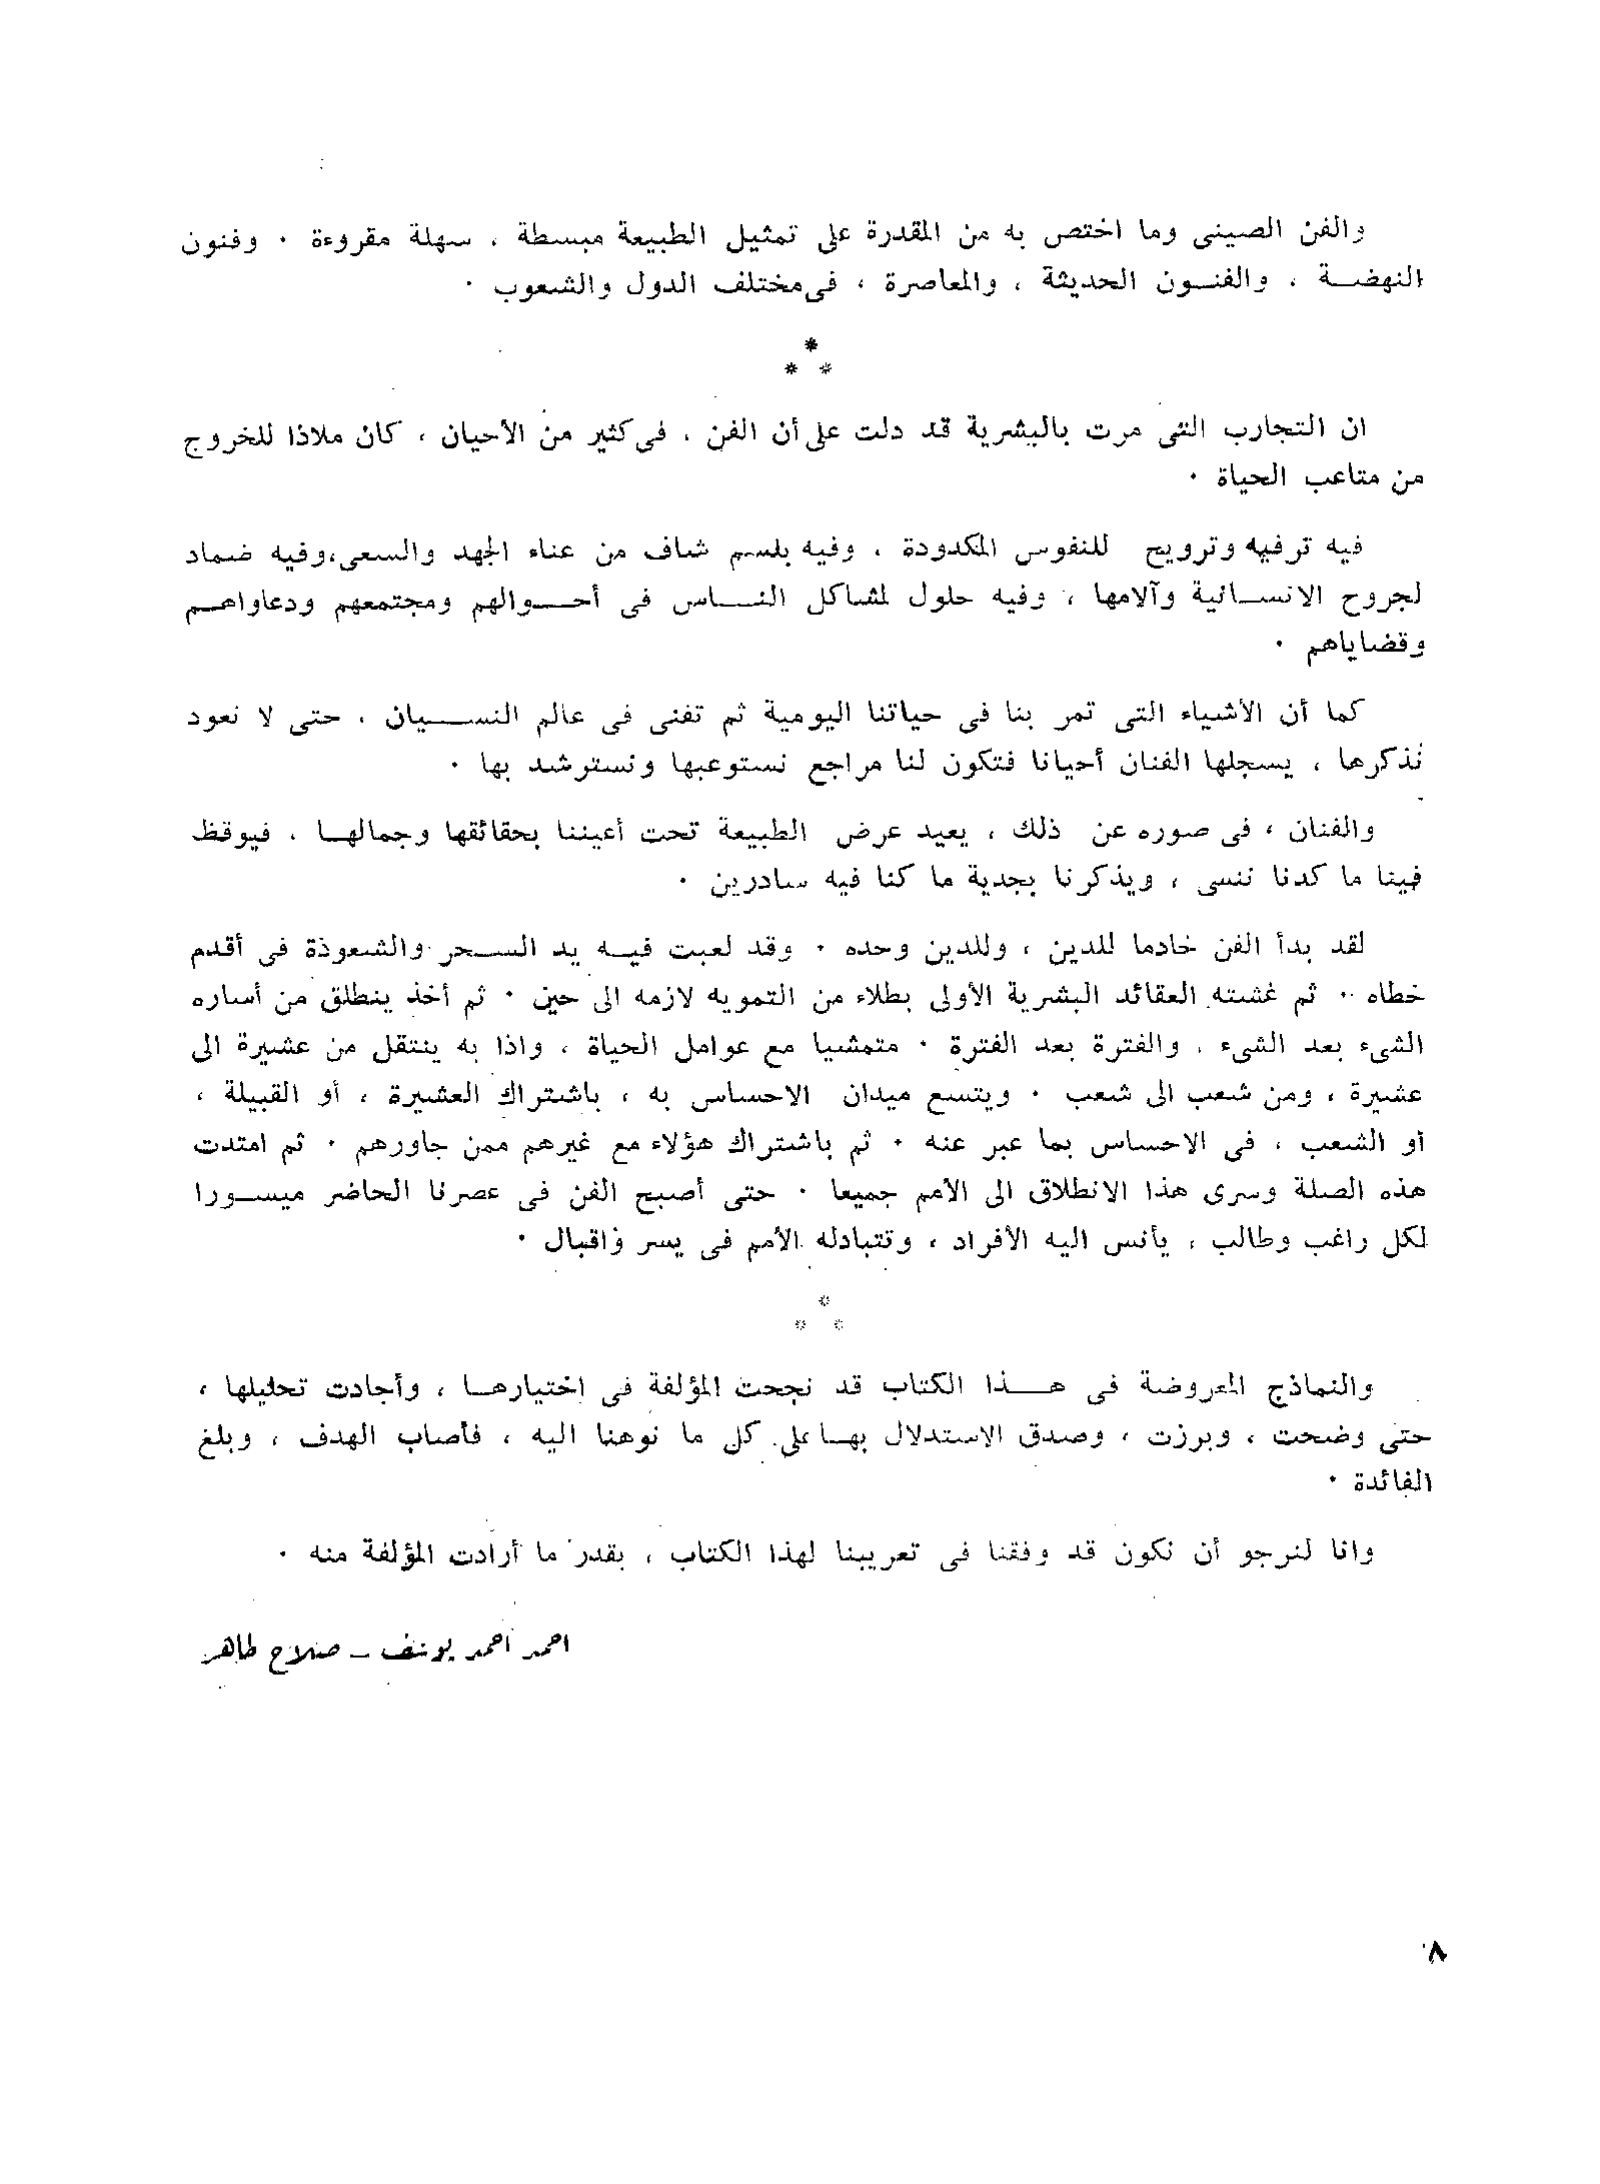 والفن الصينى وما اختص به من المقدرة على تمثيل الطبيعة مبسطة ، سهلة مقروءة ٠ وفنون
النهضة ، والفنون الحديثة ، والمعاصرة ، فى مختلف الدول والشعوب ٠
*
* *
ان التجارب التى مرت بالبشرية قد دلت على أن الفن ، فى كثير من الأحيان ، كان ملاذا للخروج
من متاعب الحياة ٠
فيه ترفيه وترويح للنفوس المكدودة ، وفيه بلسم شاف من عناء الجهد والسعى، وفيه ضماد
لجروح الانسانية وآلامها ، وفيه حلول لمشاكل الناس فى أحوالهم ومجتمعهم ودعاواهم
وقضاياهم ٠
كما أن الأشياء التى تمر بنا فى حياتنا اليومية ثم تفنى فى عالم النسيان ، حتى لا نعود
نذكرها ، يسجلها الفنان أحيانا فتكون لنا مراجع نستوعبها ونسترشد بها ٠
والفنان ، فى صوره عن ذلك ، يعيد عرض الطبيعة تحت أعيننا بحقائقها وجمالها ، فيوقظ
فينا ما كدنا ننسى ، ويذكرنا بجدية ما كنا فيه سادرين ٠
لقد بدأ الفن خادما للدين ، وللدين وحده ٠ وقد لعبت فيه يد السحر والشعوذة فى أقدم
خطاه ٠٠ ثم غشته العقائد البشرية الأولى بطلاء من التمويه لازمه الى حين ٠ ثم أخذ ينطلق من أساره
الشىء بعد الشىء ، والفترة بعد الفترة ٠ متمشيا مع عوامل الحياة ، واذا به ينتقل من عشيرة الى
عشيرة ، ومن شعب الى شعب ٠ ويتسع ميدان الاحساس به ، باشتراك العشيرة ، أو القبيلة ،
أو الشعب ، فى الاحساس بما عبر عنه ٠ ثم باشتراك هؤلاء مع غيرهم ممن جاورهم ٠ ثم امتدت
هذه الصلة وسرى هذا الانطلاق الى الأمم جميعا ٠ حتى أصبح الفن فى عصرنا الحاضر ميسورا
لكل راغب وطالب ، يأنس اليه الأفراد ، وتتبادله الأمم فى يسر واقبال ٠
*
* *
والنماذج المعروضة فى هذا الكتاب قد نجحت المؤلفة فى اختيارها ، وأجادت تحليلها ،
حتى وضحت ، وبرزت ، وصدق الاستدلال بها على كل ما نوهنا اليه ، فأصاب الهدف ، وبلغ
الفائدة ٠
وانا لنرجو أن نكون قد وفقنا فى تعريبنا لهذا الكتاب ، بقدر ما أرادت المؤلفة منه ٠
احمد احمد يوسف ــ صلاح طاهر
٨